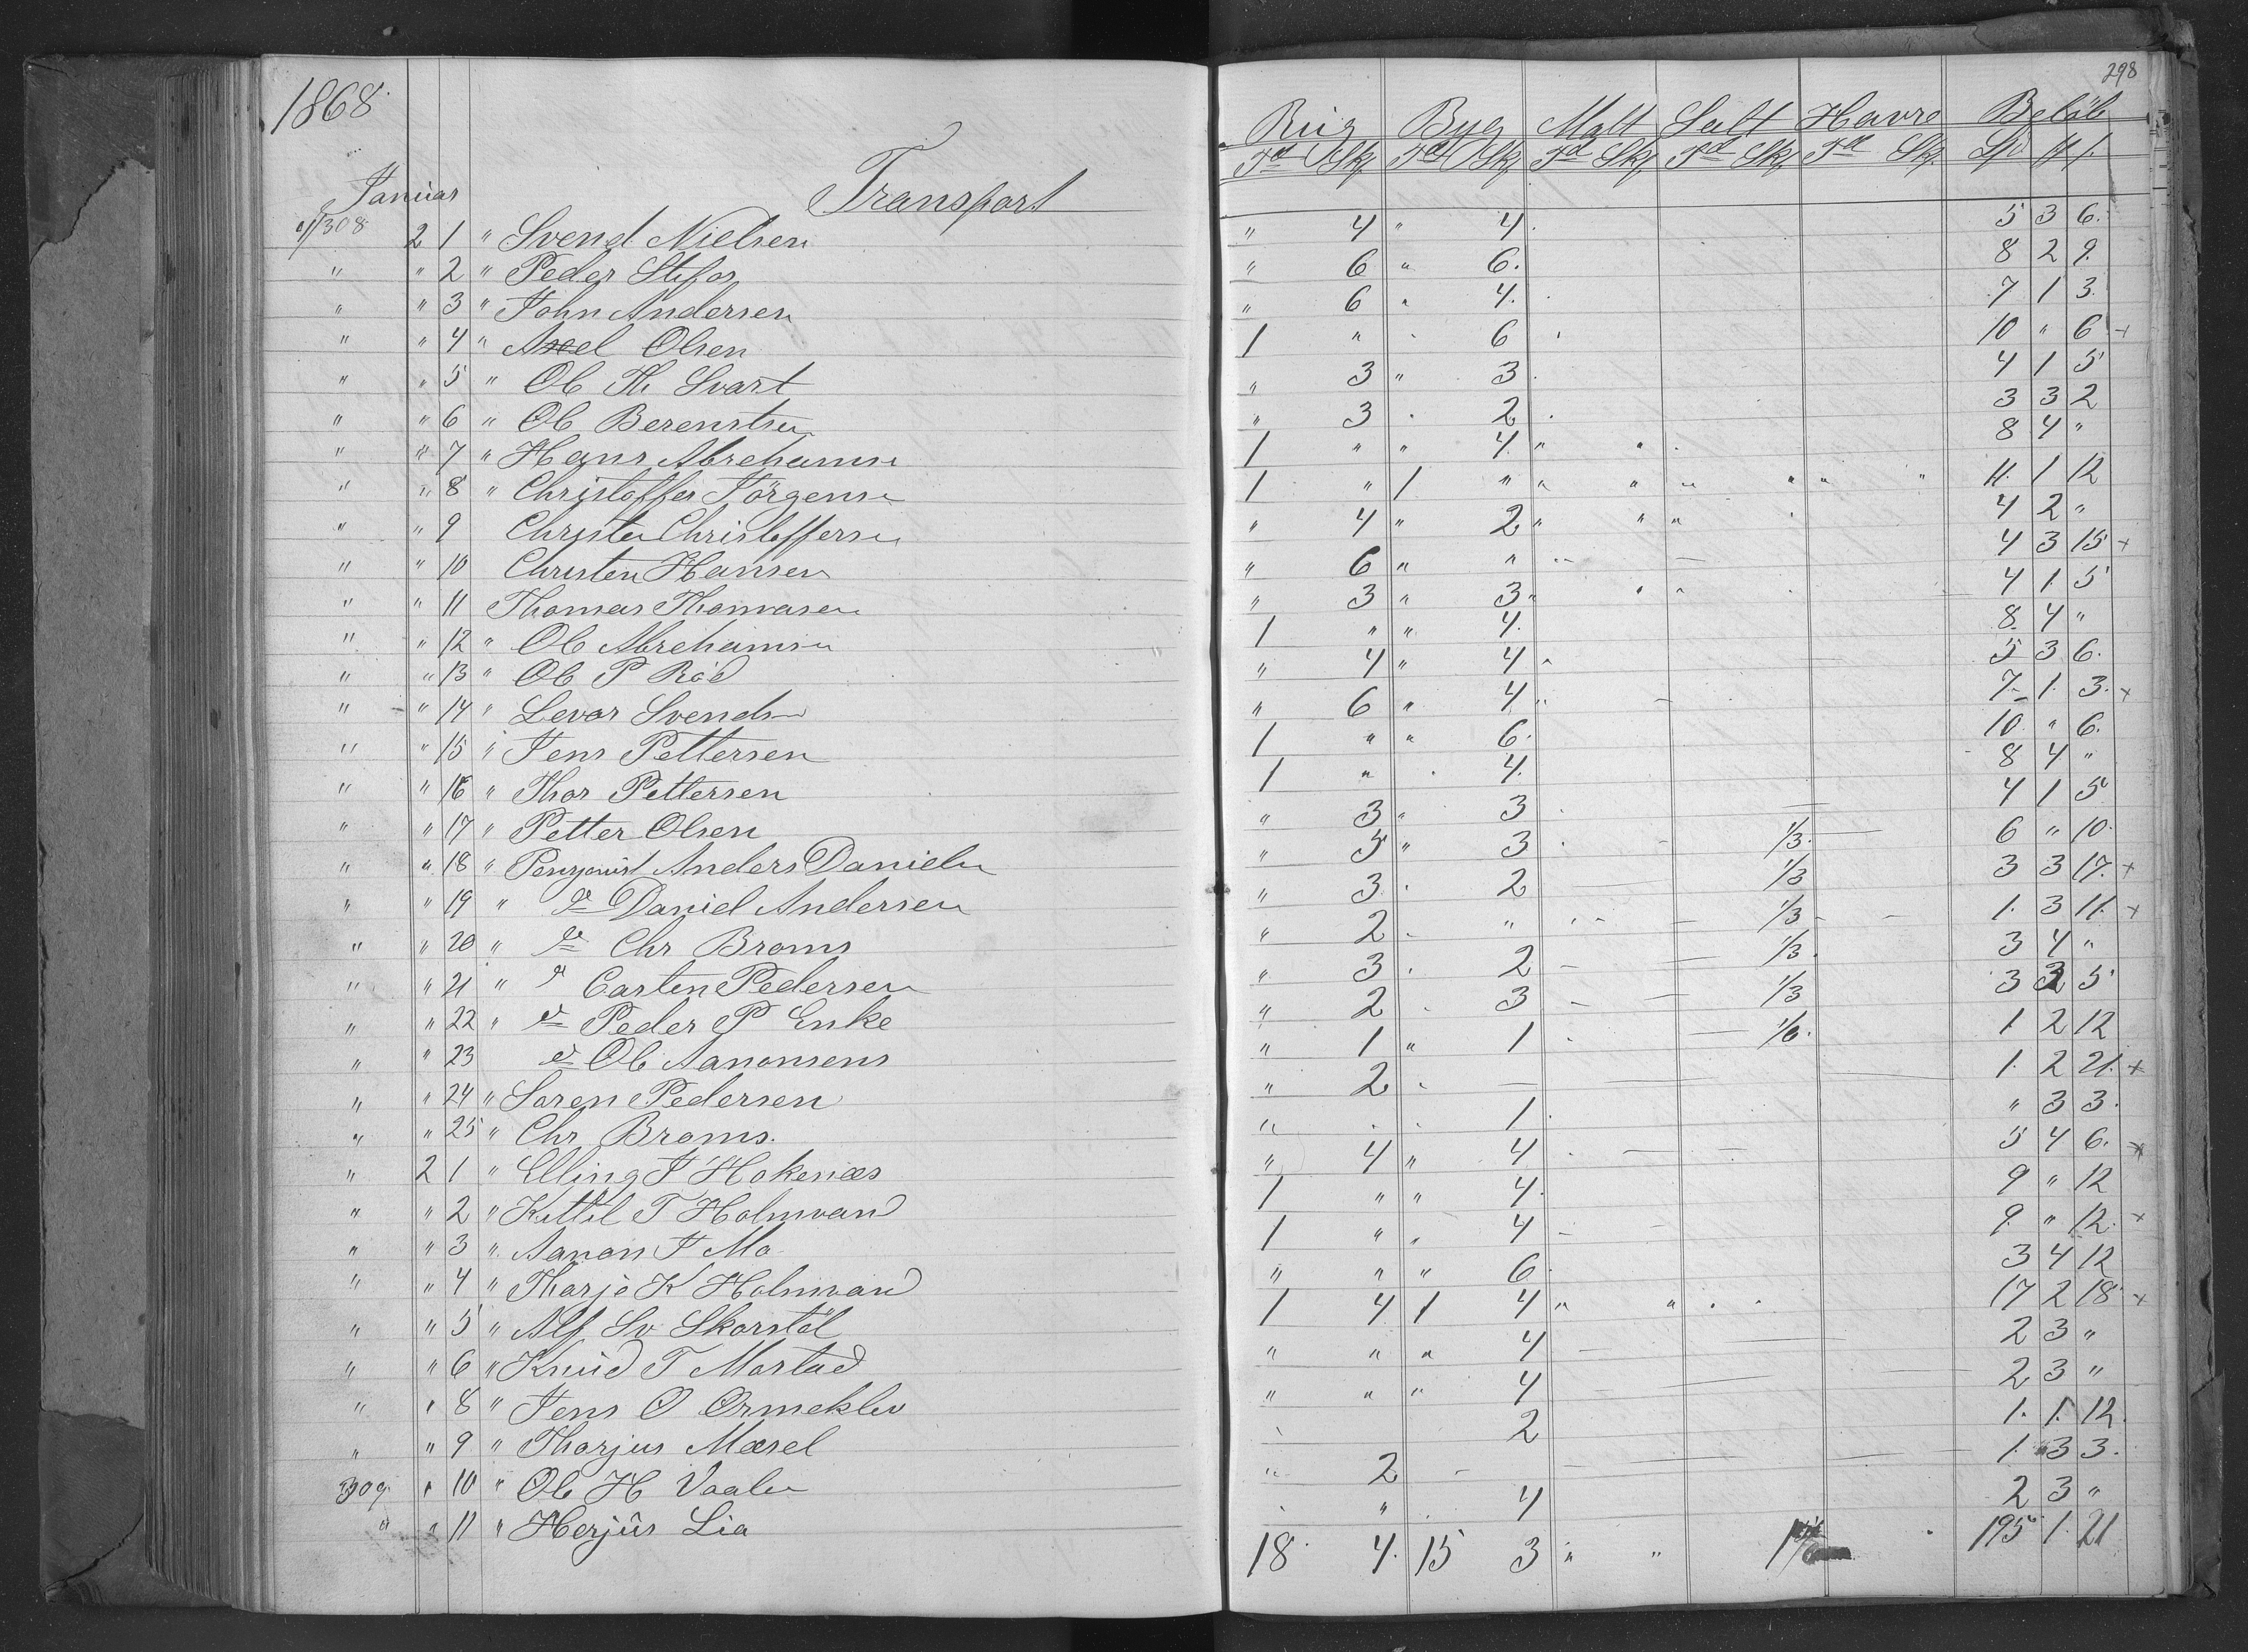 1868.
298
Rüg Byg Malt Salt Havre Belöb
Td Skp Td Skp Td Skp Td Skp Td Skp Spd
Januar Transport
308 2 1 " Svend Nielsen " 4 " 4. 5 3 6.
" " 2 " Peder " 6 " 6. 8 2 9.
" " 3 " John Andersen " 6 " 4. 7 1 3.
" " 4 " Axel Olsen 1 " " 6 10 " 6 +
" " 5 " Ole Th Svart " 3 " 3. 4 1 5
" " 6 " Ole Berentsen " 3 . 2. 3 3 2
" " 7 " Hans Abrehamsen 1 " " 4. " " 8 4 "
" " 8 " Christoffer Jörgensen 1 " 1 " " " " " " " 11. 1 12
" " 9 Christen Christoffersen " 4 " 2 " " " 4 2 "
" " 10 Christen Hansen " 6 " " 4 3 15 +
" " 11 Thomas Thomasen " 3 " 3 " " " 4 1 5
" " 12 " Ole Abrehamsen 1 " " 4. 8. 4 "
" " 13 " Ole P Röd " 4 " 4 " 5 3 6.
" " 14 " Levor Svendsen " 6 " 4 " 7. 1. 3. +
" " 15 " Jens Pettersen 1 " " 6. 10 " 6.
" " 16 " Thor Pettersen 1 " . 4. 8 4 "
" " 17 " Petter Olsen " 3 " 3 4 1 5
" " 18 " Anders Danielsen " 5 " 3 1/3. 6 " 10.
" " 19 " do Daniel Andersen " 3. 2 1/3 3 3 17. +
" " 20 " do Chr Broms " 2. " 1/3 1. 3 11. +
" " 21 " do Carsten Pedersen " 3. 2 1/3. 3 4 "
" " 22 " do Peder P Enke " 2. 3 1/3 3 3 5
" " 23 do Ole Aanonsens " 1 " 1 1/6. 1. 2 12
" " 24 " Soren Pedersen " 2 1. 2 21. +
" " 25 " Chr Broms. " . . 1. " 3 3.
" 2 1 " Elling J Hokenæs " 4 " 4 5 4 6. +
" " 2 " Kittil T Holmvand 1 " " 4. 9 " 12
" " 3 " Aanon J Mo 1 " " 4 9. " 12. +
" " 4 " Tharje K Holmvand " " " 6. 3 4 12
" " 5 " Alf Sv Skorstöl 1 4 1 4 " " 17 2 18. +
" " 6 " Knüd T Mostad " " " 4 2 3 "
" " 8 " Jens O Ormeklev " " " 4 2 3 "
" " 9 " Thorjus Mæsel 2 1. 1. 12.
309 " 10 " Ole H Vaaler " 2 1. 3 3.
" " 11 " Herjüs Lia " 4 2 3 "
18. 4. 15 3 " " 195 1. 21